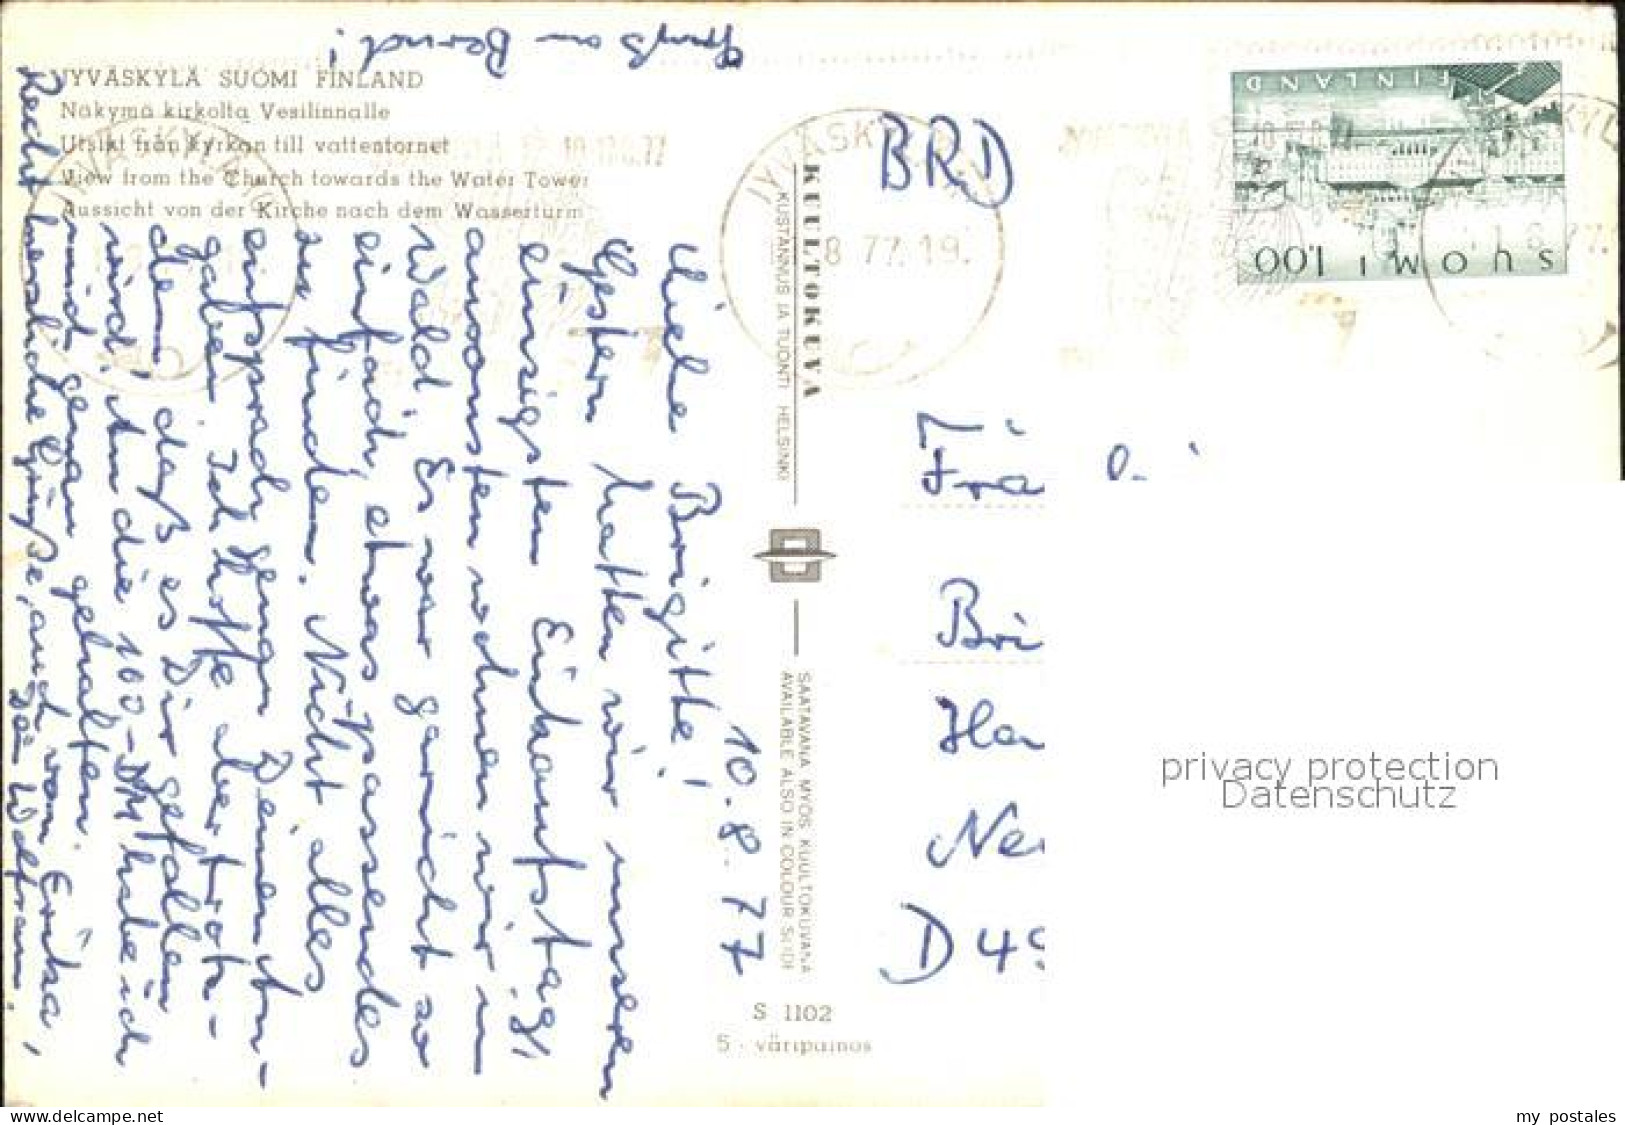 JYVÄSKYLÄ SUOMI FINLAND
Näkymä kirkolta Vesilinnalle
Utsikt från kyrkan till vattentornet
View from the Church towards the Water Tower
Aussicht von der Kirche nach dem Wasserturm
Gruß an Bernd!
10.8.77
Liebe Brigitte!
Gestern hatten wir unseren
einzigsten Einkaufstag,
ansonsten wohnen wir im
Wald. Es war garnicht so
einfach, etwas passendes
zu finden. Nicht alles
entsprach genau Deinen An-
gaben. Ich hoffe aber trotz-
dem, daß es Dir gefallen
wird. An die 100-DM habe ich
mich genau gehalten.
Recht herzliche Grüße, auch von Erika,
Dein Wolfram.
KUULTOKUVA
KUSTANNUS JA TUONTI HELSINKI
SAATAVANA MYÖS KUULTOKUVANA
AVAILABLE ALSO IN COLOUR SLIDE
S 1102
5 - väripainos
BRD
FINLAND
SUOMI 1.00
JYVÄSKYLÄ
8 77.19
Frä
Bri
Ha
Ne
D 49
privacy protection
Datenschutz
www.delcampe.net
my_postales